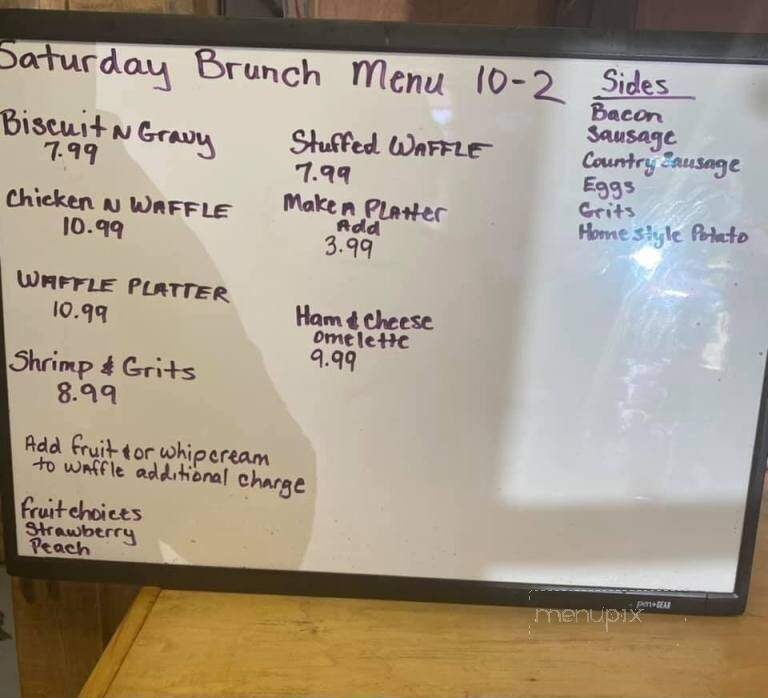 Saturday Brunch Menu 10-2
Biscuit N Gravy
7.99
Chicken N WAFFLE
10.99
WAFFLE PLATTER
10.99
Shrimp & Grits
8.99
Add fruit &or whipcream
to waffle additional charge
fruit choices
Strawberry
Peach
Stuffed WAFFLE
7.99
Make A Platter
Add
3.99
Ham & cheese
omelette
9.99
Sides
Bacon
Sausage
Country Sausage
Eggs
Grits
Home style Potato
pen+GEAR
menupix